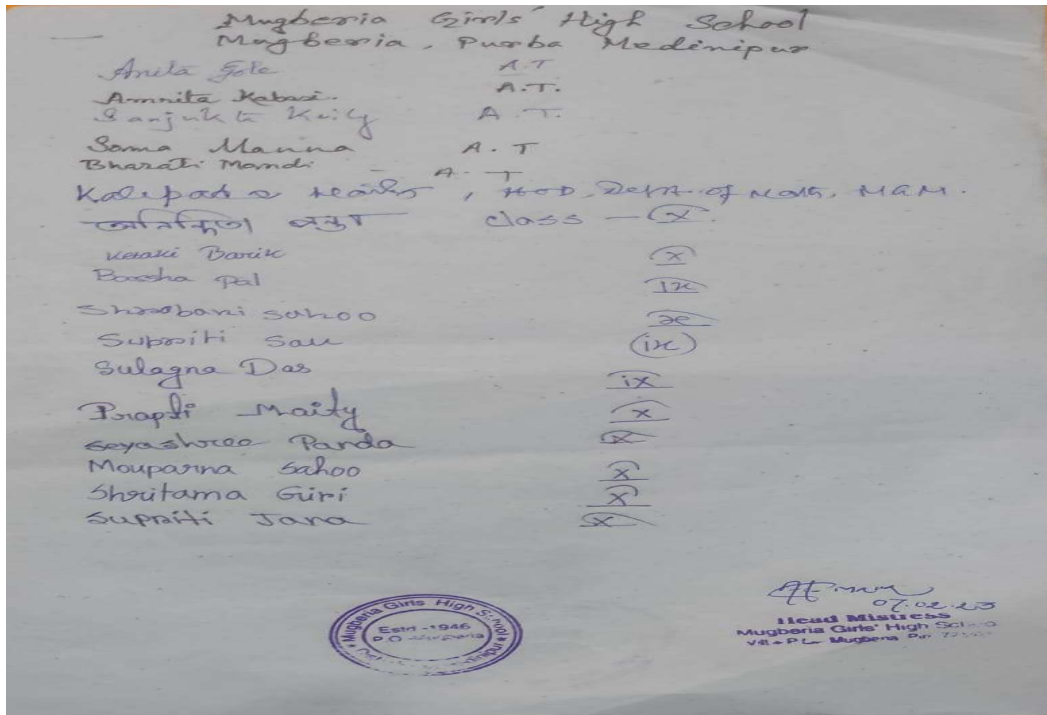 Mugberia Girls' High School
Mugberia, Purba Medinipur
Anita A.T
Amrita Kabasi. A.T.
Sanjukta Kuity A.T.
Soma Manna A.T
Bharati Mandi - A.T
Kalipada Maity, HOD, Dept. of Math, MGM.
class - X
Ketaki Barik X
Barsha Pal IX
Shrabani Sahoo
Supriti Sau (ix)
Sulagna Das ix
Prapti Maity X
Seyashree Panda X
Mouparna Sahoo X
Shritama Giri X
Supriti Jana X
Mugberia Girls High School
Estd-1946
P.O
07.02.23
Head Mistress
Mugberia Girls' High School
Vill + P.O. Mugberia